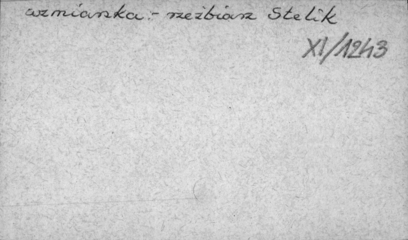 wzmianka:- rzeźbiarz Stelik
XI/1243